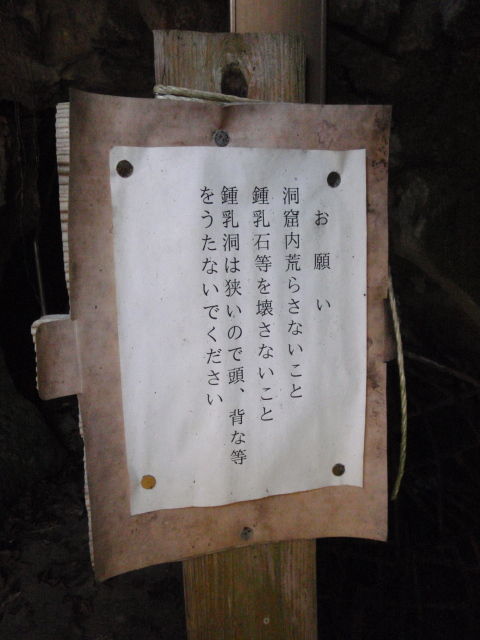 お願い
洞窟内荒らさないこと
鍾乳石等を壊さないこと
鍾乳洞は狭いので頭、背な等
をうたないでください